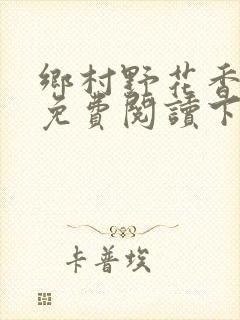 鄉村野花香
免費閱讀下
卡普埃